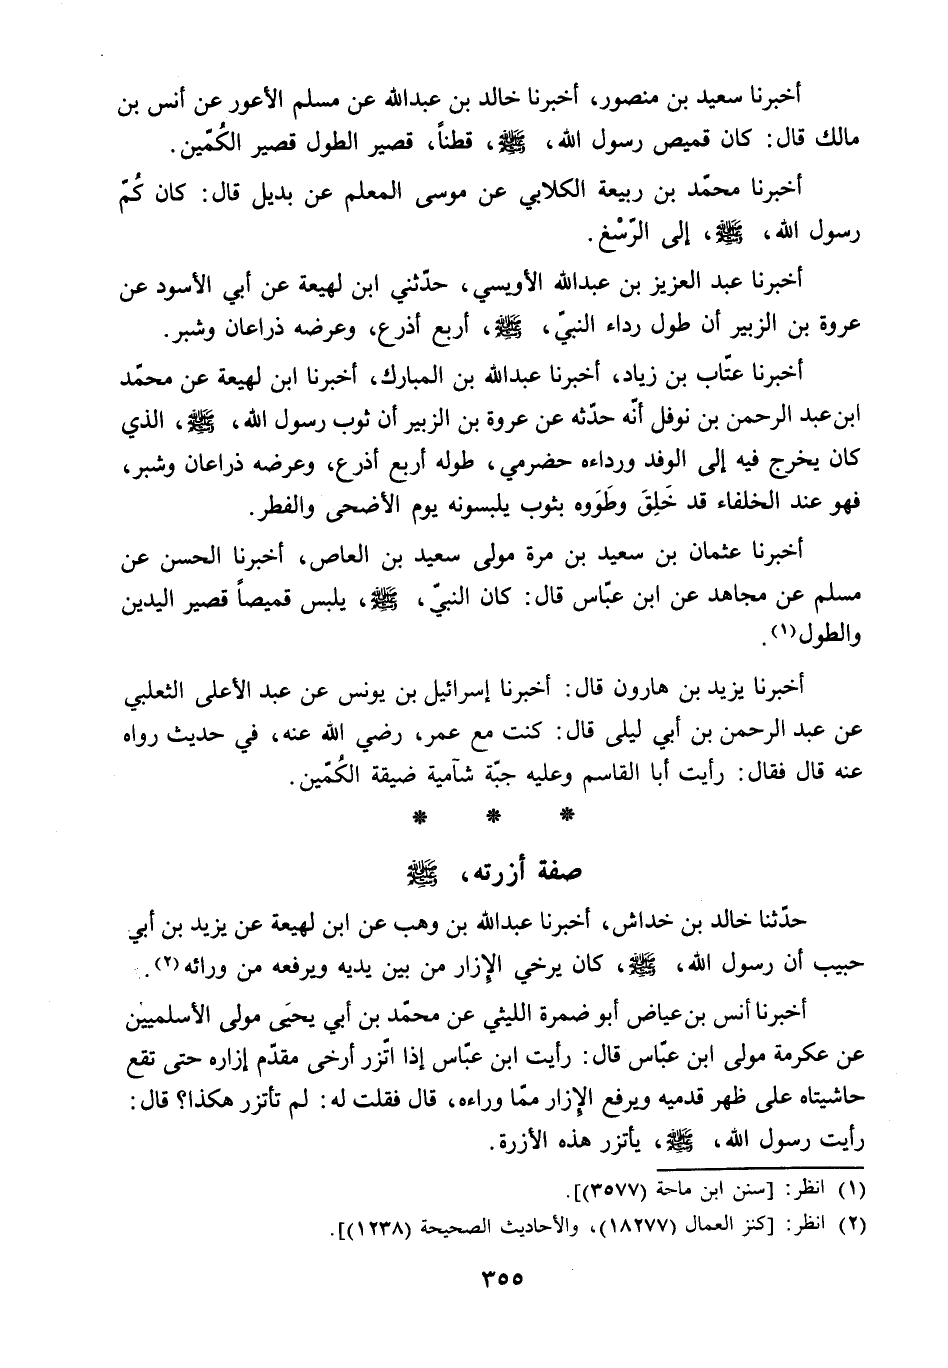 أخبرنا سعيد بن منصور، أخبرنا خالد بن عبدالله عن مسلم الأعور عن أنس بن
مالك قال: كان قميص رسول الله، ﷺ، قطناً، قصير الطول قصير الكُمّين.
أخبرنا محمّد بن ربيعة الكلابي عن موسى المعلم عن بديل قال: كان كُمّ
رسول الله، ﷺ، إلى الرّسْغ.
أخبرنا عبد العزيز بن عبدالله الأويسي، حدّثني ابن لهيعة عن أبي الأسود عن
عروة بن الزبير أن طول رداء النبيّ، ﷺ، أربع أذرع، وعرضه ذراعان وشبر.
أخبرنا عتّاب بن زياد، أخبرنا عبدالله بن المبارك، أخبرنا ابن لهيعة عن محمّد
ابن عبد الرحمن بن نوفل أنّه حدّثه عن عروة بن الزبير أن ثوب رسول الله، ﷺ، الذي
كان يخرج فيه إلى الوفد ورداءه حضرمي، طوله أربع أذرع، وعرضه ذراعان وشبر،
فهو عند الخلفاء قد خَلِقَ وطَوَوه بثوب يلبسونه يوم الأضحى والفطر.
أخبرنا عثمان بن سعيد بن مرة مولى سعيد بن العاص، أخبرنا الحسن عن
مسلم عن مجاهد عن ابن عبّاس قال: كان النبيّ، ﷺ، يلبس قميصاً قصير اليدين
والطول(١).
أخبرنا يزيد بن هارون قال: أخبرنا إسرائيل بن يونس عن عبد الأعلى الثعلبي
عن عبد الرحمن بن أبي ليلى قال: كنت مع عمر، رضي الله عنه، في حديث رواه
عنه قال فقال: رأيت أبا القاسم وعليه جبّة شآمية ضيقة الكُمّين.
* * *
صفة أزرته، ﷺ
حدّثنا خالد بن خداش، أخبرنا عبدالله بن وهب عن ابن لهيعة عن يزيد بن أبي
حبيب أن رسول الله، ﷺ، كان يرخي الإزار من بين يديه ويرفعه من ورائه(٢).
أخبرنا أنس بن عياض أبو ضمرة الليثي عن محمّد بن أبي يحيَى مولى الأسلميين
عن عكرمة مولى ابن عبّاس قال: رأيت ابن عبّاس إذا اتّزر أرخى مقدّم إزاره حتى تقع
حاشيتاه على ظهر قدميه ويرفع الإزار ممّا وراءه، قال فقلت له: لم تأتزر هكذا؟ قال:
رأيت رسول الله، ﷺ، يأتزر هذه الأزرة.
(١) انظر: [سنن ابن ماحة (٣٥٧٧)].
(٢) انظر: [كنز العمال (١٨٢٧٧)، والأحاديث الصحيحة (١٢٣٨)].
٣٥٥